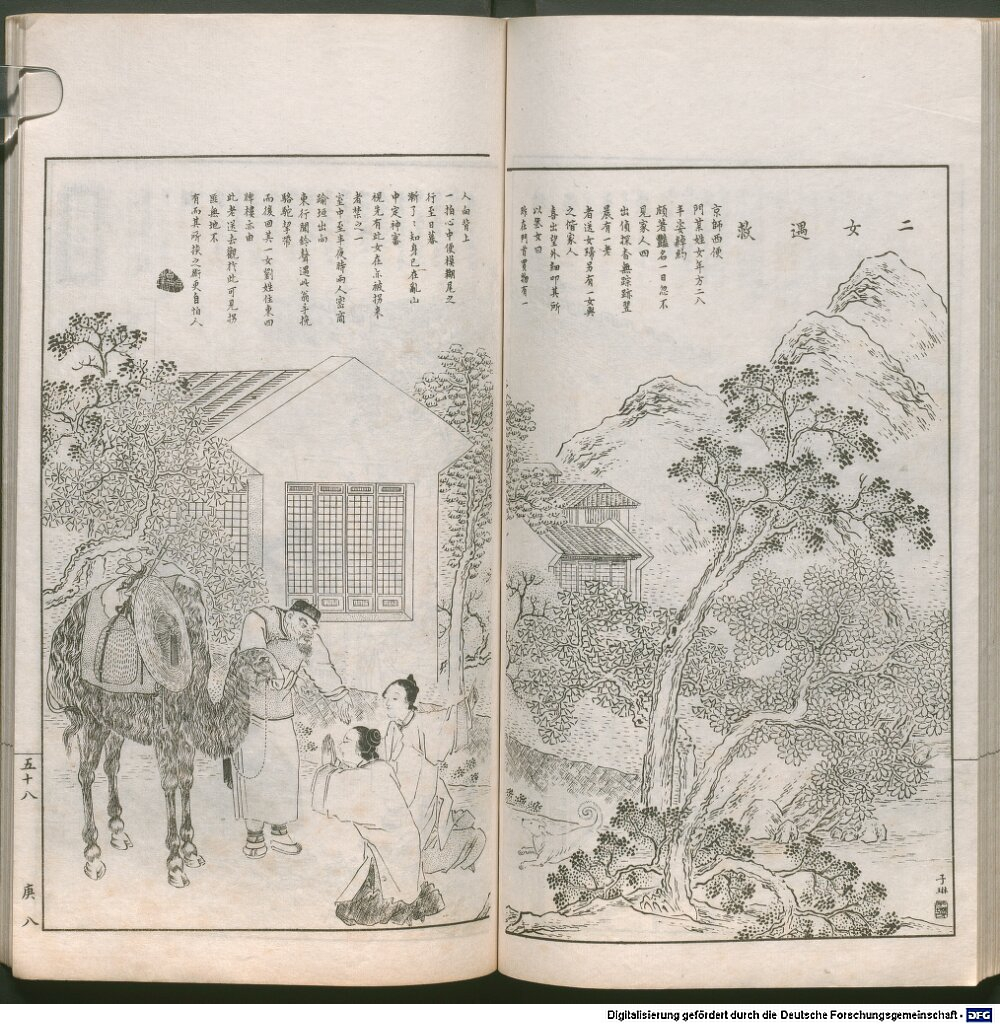 二女遇救
京師西便
門葉姓女年方二八
丰姿綽約
頗著豔名一日忽不
見家人四
出偵探杳無踪跡翌
晨有一老
者送女歸另有一女與
之偕家人
喜出望外細叩其所
以葉女曰
昨在門首買物有一
人向背上
一拍心中便模糊尾之
行至日暮
漸了了知身已在亂山
中定神審
視先有此女在亦被拐來
者禁之一
室中至半夜時兩人密商
踰垣出向
東行聞鈴聲遇此翁手挽
駱駝挈帶
而後回其一女劉姓住東四
牌樓亦由
此老送去觀於此可見拐
匪無地不
有而其所損之術更自怕人
子琳
五十八
庚
八
Digitalisierung gefördert durch die Deutsche Forschungsgemeinschaft - DFG